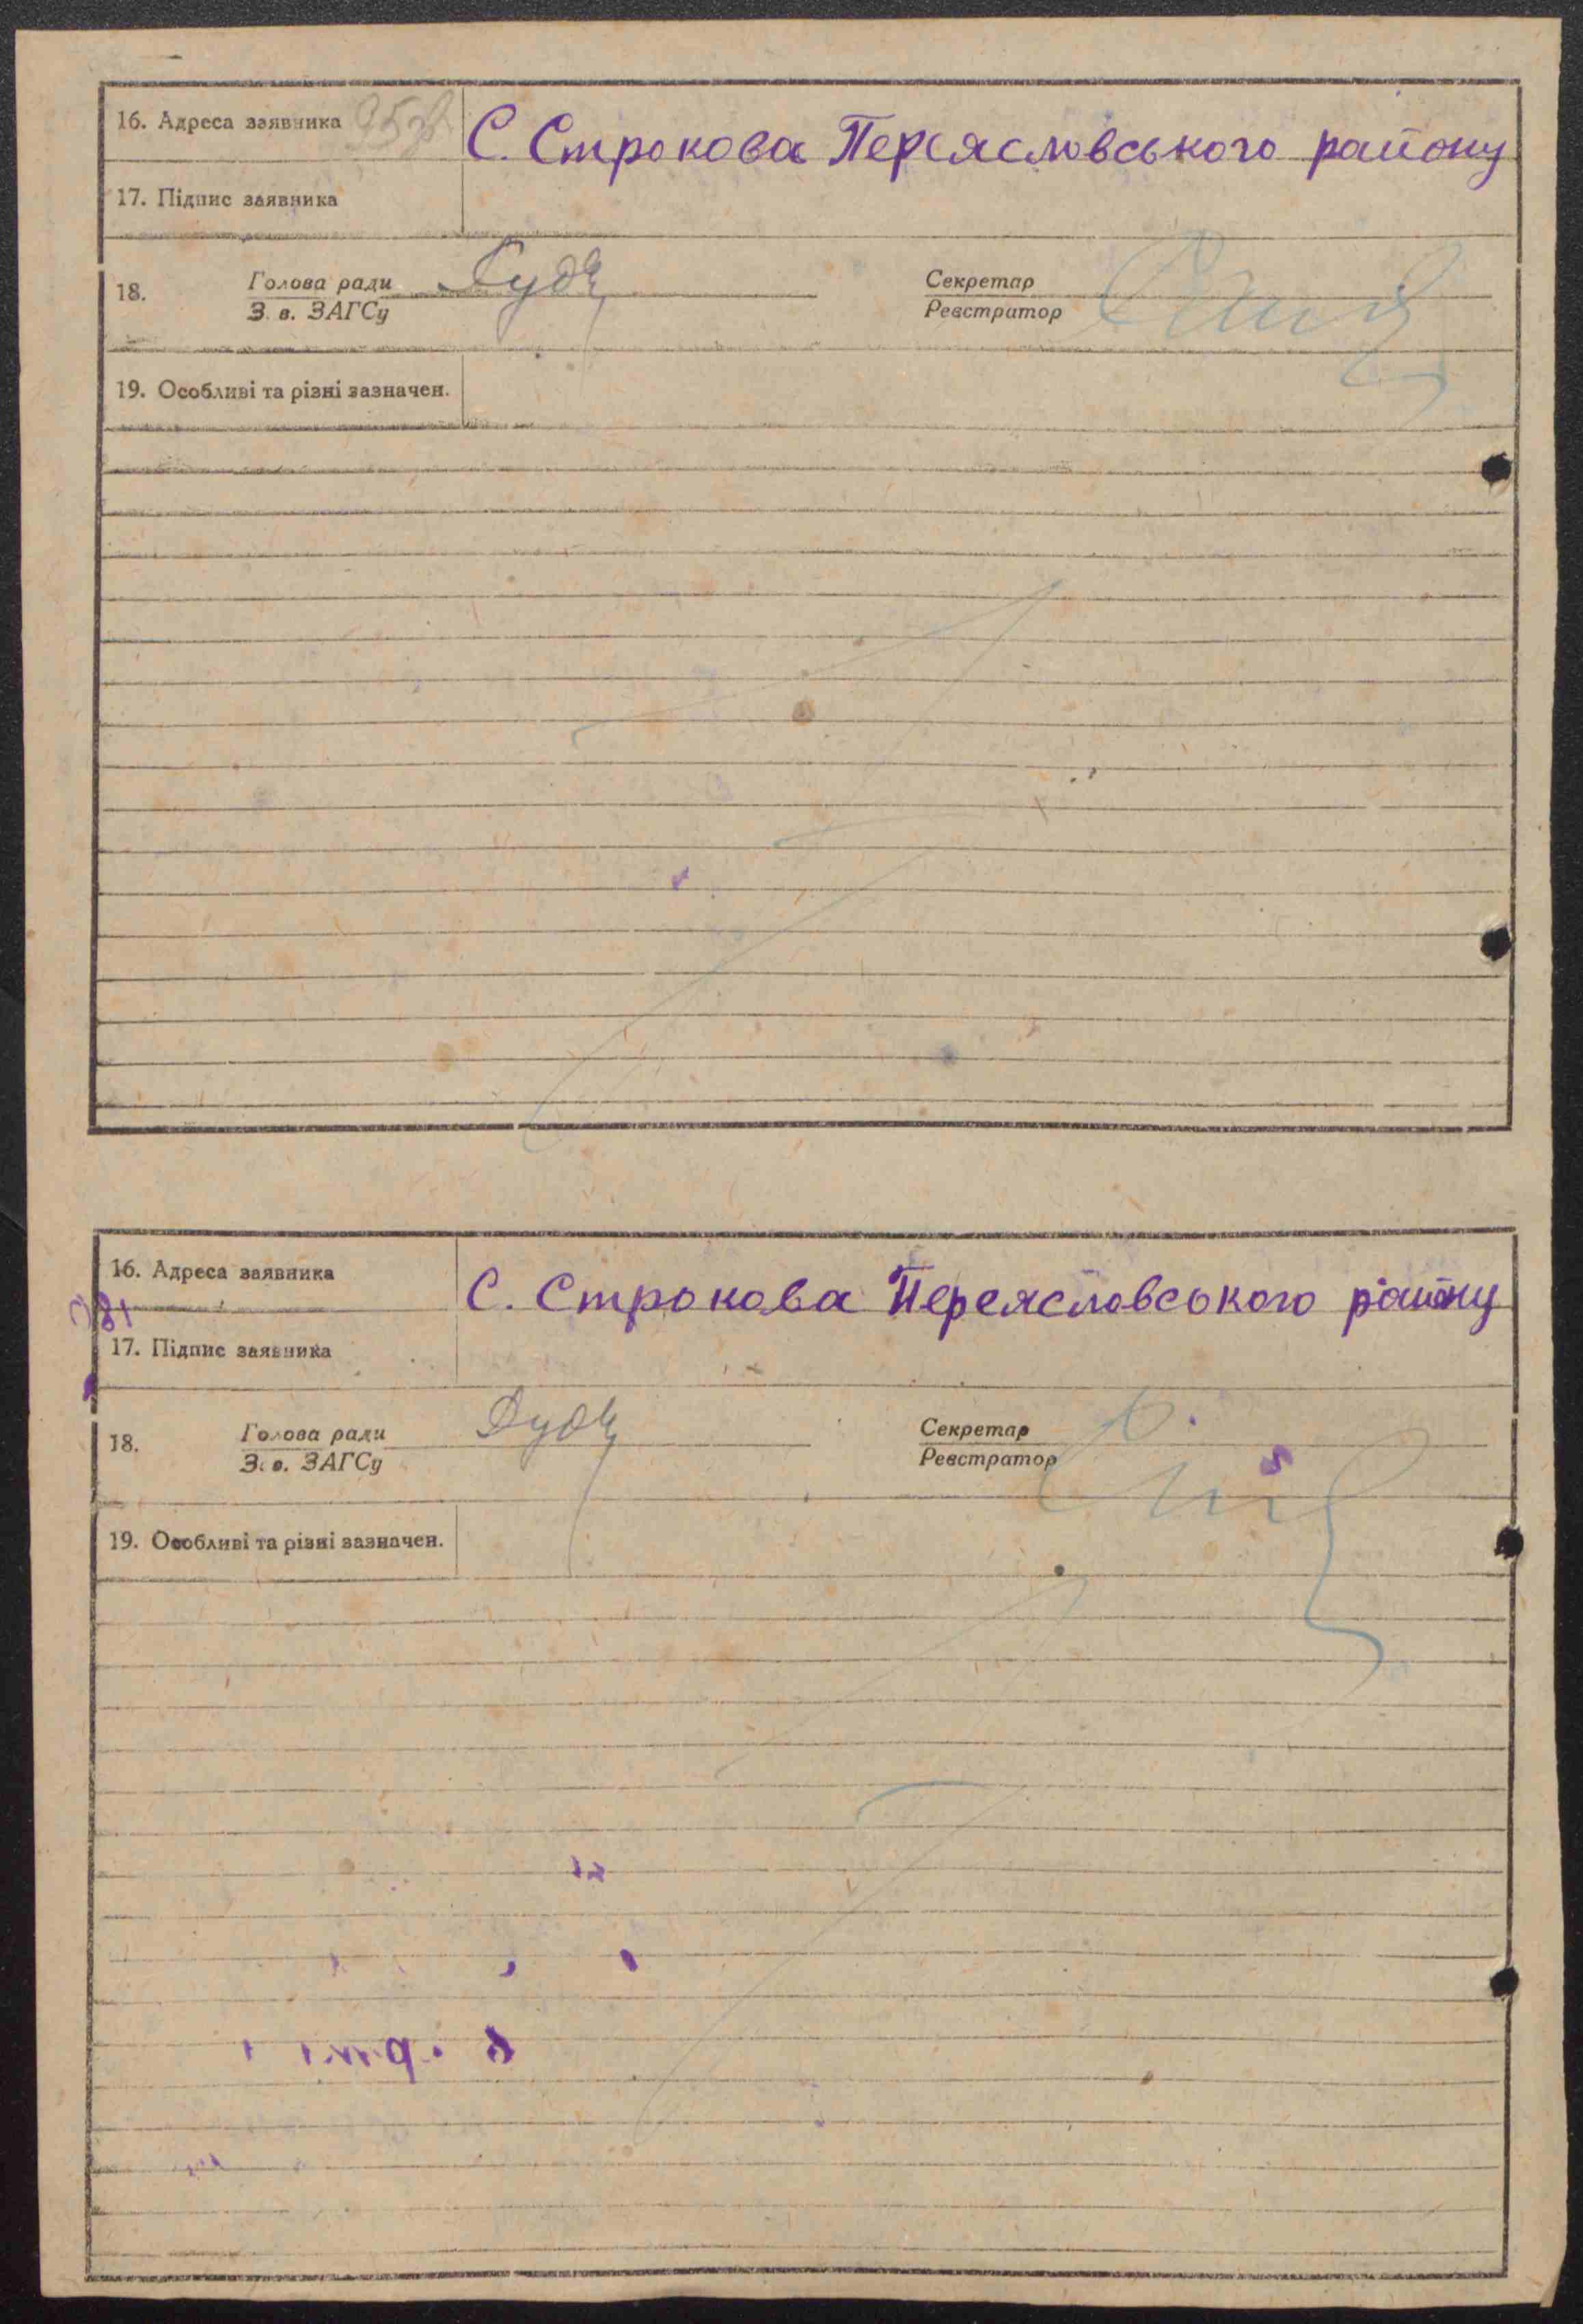 16. Адреса заявника
С. Строкова Переясловського району
17. Підпис заявника
18.
Голова ради
З. в. ЗАГСу
Секретар
Реєстратор
19. Особливі та різні зазначен.
16. Адреса заявника
С. Строкова Переясловського району
17. Підпис заявника
18.
Голова ради
З. в. ЗАГСу
Секретар
Реєстратор
19. Особливі та різні зазначен.